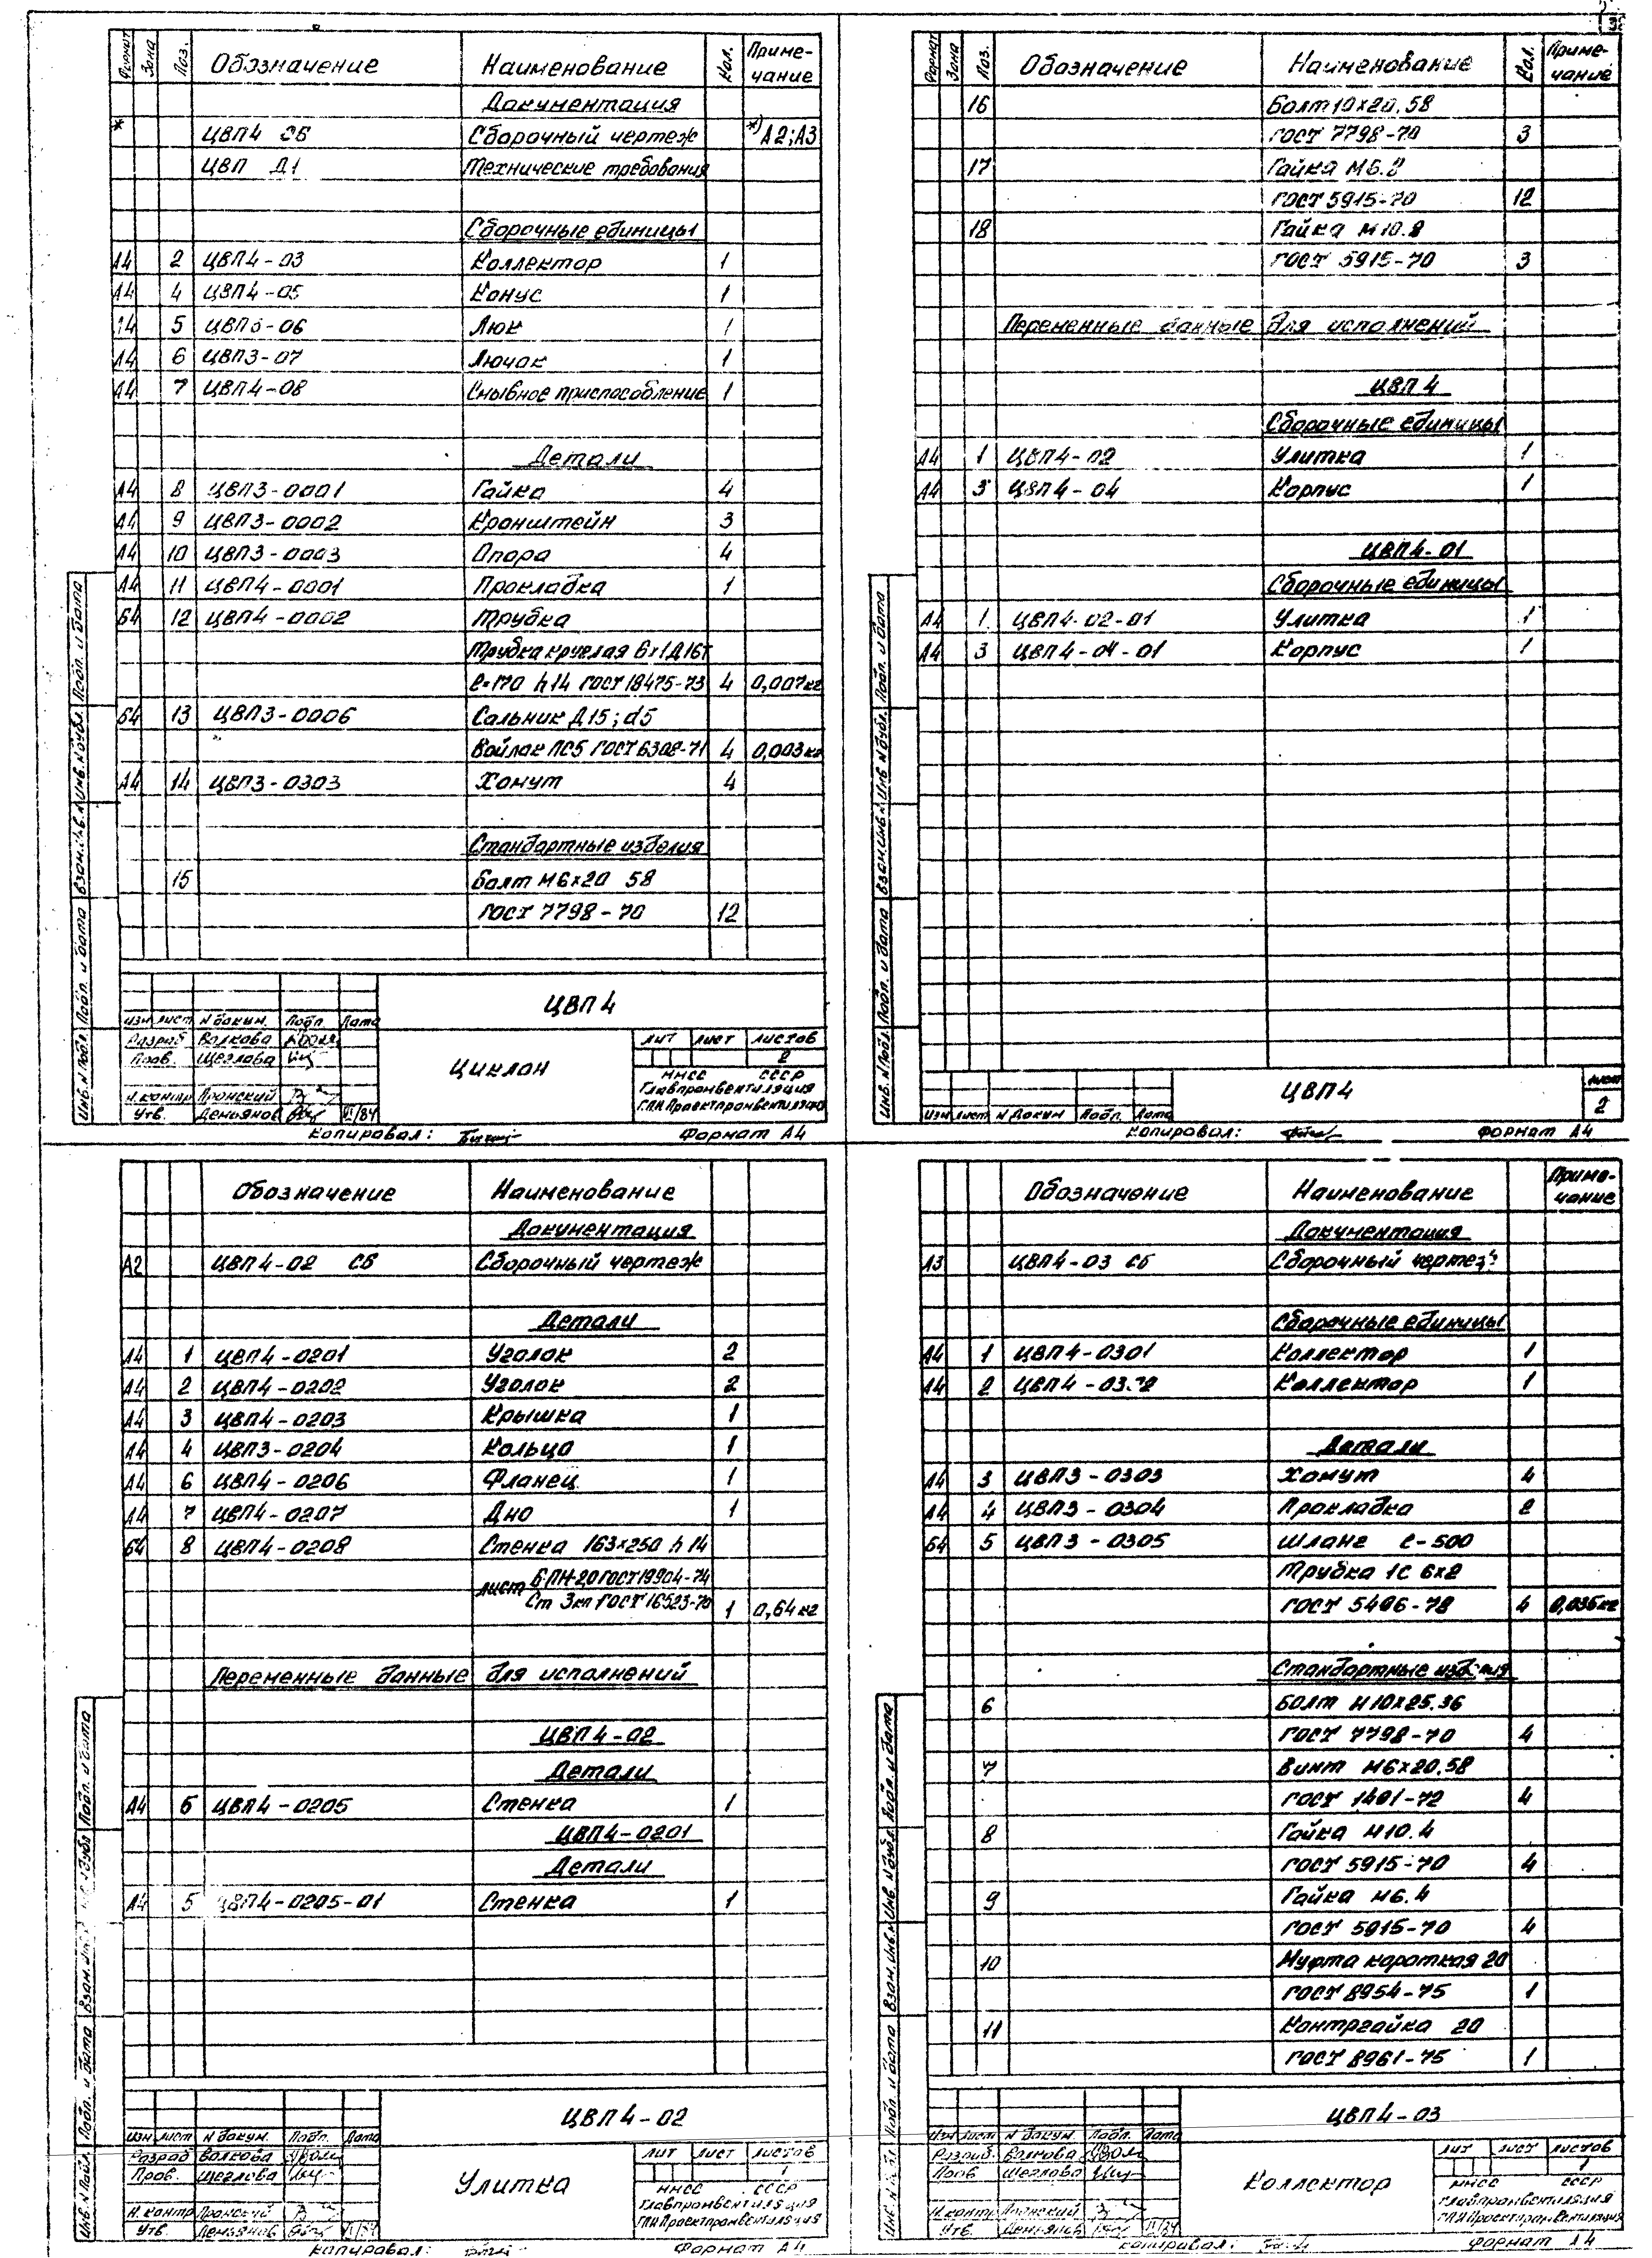 Формат Зона Поз. Обозначение Наименование Кол. Приме-
чание
Документация
* ЦВП4 СБ Сборочный чертеж *) А2;А3
ЦВП Д1 Технические требования
Сборочные единицы
А4 2 ЦВП4-03 Коллектор 1
А4 4 ЦВП4-05 Конус 1
А4 5 ЦВП3-06 Люк 1
А4 6 ЦВП3-07 Лючок 1
А4 7 ЦВП4-08 Смывное приспособление 1
Детали
А4 8 ЦВП3-0001 Гайка 4
А4 9 ЦВП3-0002 Кронштейн 3
А4 10 ЦВП3-0003 Опора 4
А4 11 ЦВП4-0001 Прокладка 1
Б4 12 ЦВП4-0002 Трубка
Трубка круглая 6х1 Д16Т
ℓ=170 h14 ГОСТ 18475-73 4 0,007кг
Б4 13 ЦВП3-0006 Сальник Д15; d5
Войлок ПС5 ГОСТ 6308-71 4 0,003кг
А4 14 ЦВП3-0303 Хомут 4
Стандартные изделия
15 Болт М6х20 58
ГОСТ 7798-70 12
ЦВП4
Изм Лист N докум. Подп. Дата
Разраб Волкова
Пров. Щеглова
Н.контр Пронский
Утв. Демьянов VI/84
Циклон
Лит Лист Листов
2
ММСС СССР
Главпромвентиляция
ГПИ Проектпромвентиляция
Инв. N Подл. Подп. и дата Взам. инв. N Инв. N дубл. Подп. и дата
Копировал: Формат А4
3
Формат Зона Поз. Обозначение Наименование Кол. Приме-
чание
16 Болт 10х20.58
ГОСТ 7798-70 3
17 Гайка М6.8
ГОСТ 5915-70 12
18 Гайка М10.8
ГОСТ 5915-70 3
Переменные данные для исполнений
ЦВП4
Сборочные единицы
А4 1 ЦВП4-02 Улитка 1
А4 3 ЦВП4-04 Корпус 1
ЦВП4-01
Сборочные единицы
А4 1 ЦВП4-02-01 Улитка 1
А4 3 ЦВП4-04-01 Корпус 1
Изм Лист N Докум Подп. Дата
ЦВП4
Лист
2
Инв. N Подл. Подп. и дата Взам. инв. N Инв. N дубл. Подп. и дата
Копировал: Формат А4
Обозначение Наименование
Документация
А2 ЦВП4-02 СБ Сборочный чертеж
Детали
А4 1 ЦВП4-0201 Уголок 2
А4 2 ЦВП4-0202 Уголок 2
А4 3 ЦВП4-0203 Крышка 1
А4 4 ЦВП3-0204 Кольцо 1
А4 6 ЦВП4-0206 Фланец 1
А4 7 ЦВП4-0207 Дно 1
Б4 8 ЦВП4-0208 Стенка 163х250 h14
Лист Б-ПН-2,0 ГОСТ 19904-74
Ст 3кп ГОСТ 16523-70 1 0,64кг
Переменные данные для исполнений
ЦВП4-02
Детали
А4 5 ЦВП4-0205 Стенка 1
ЦВП4-0201
Детали
А4 5 ЦВП4-0205-01 Стенка 1
ЦВП4-02
Изм Лист N докум. Подп. Дата
Разраб Волкова
Пров. Щеглова
Н.контр Пронский
Утв. Демьянов VI/84
Улитка
Лит Лист Листов
1
ММСС СССР
Главпромвентиляция
ГПИ Проектпромвентиляция
Инв. N Подл. Подп. и дата Взам. инв. N дубл Подп. и дата
Копировал: Формат А4
Обозначение Наименование Приме-
чание
Документация
А3 ЦВП4-03 СБ Сборочный чертеж
Сборочные единицы
А4 1 ЦВП4-0301 Коллектор 1
А4 2 ЦВП4-0302 Коллектор 1
Детали
А4 3 ЦВП3-0303 Хомут 4
А4 4 ЦВП3-0304 Прокладка 2
Б4 5 ЦВП3-0305 Шланг ℓ-500
Трубка 1С 6х2
ГОСТ 5496-78 4 0,036кг
Стандартные изделия
6 Болт М10х25.36
ГОСТ 7798-70 4
7 Винт М6х20.58
ГОСТ 1491-72 4
8 Гайка М10.4
ГОСТ 5915-70 4
9 Гайка М6.4
ГОСТ 5915-70 4
10 Муфта короткая 20
ГОСТ 8954-75 1
11 Контргайка 20
ГОСТ 8961-75 1
ЦВП4-03
Изм Лист N докум. Подп. Дата
Разраб. Волкова
Пров Щеглова
Н.контр Пронский
Утв. Демьянов VI/84
Коллектор
Лит Лист Листов
1
ММСС СССР
Главпромвентиляция
ГПИ Проектпромвентиляция
Инв. N Подл Подп. и дата Взам. инв. N Инв. N дубл. Подп. и дата
Копировал: Формат А4